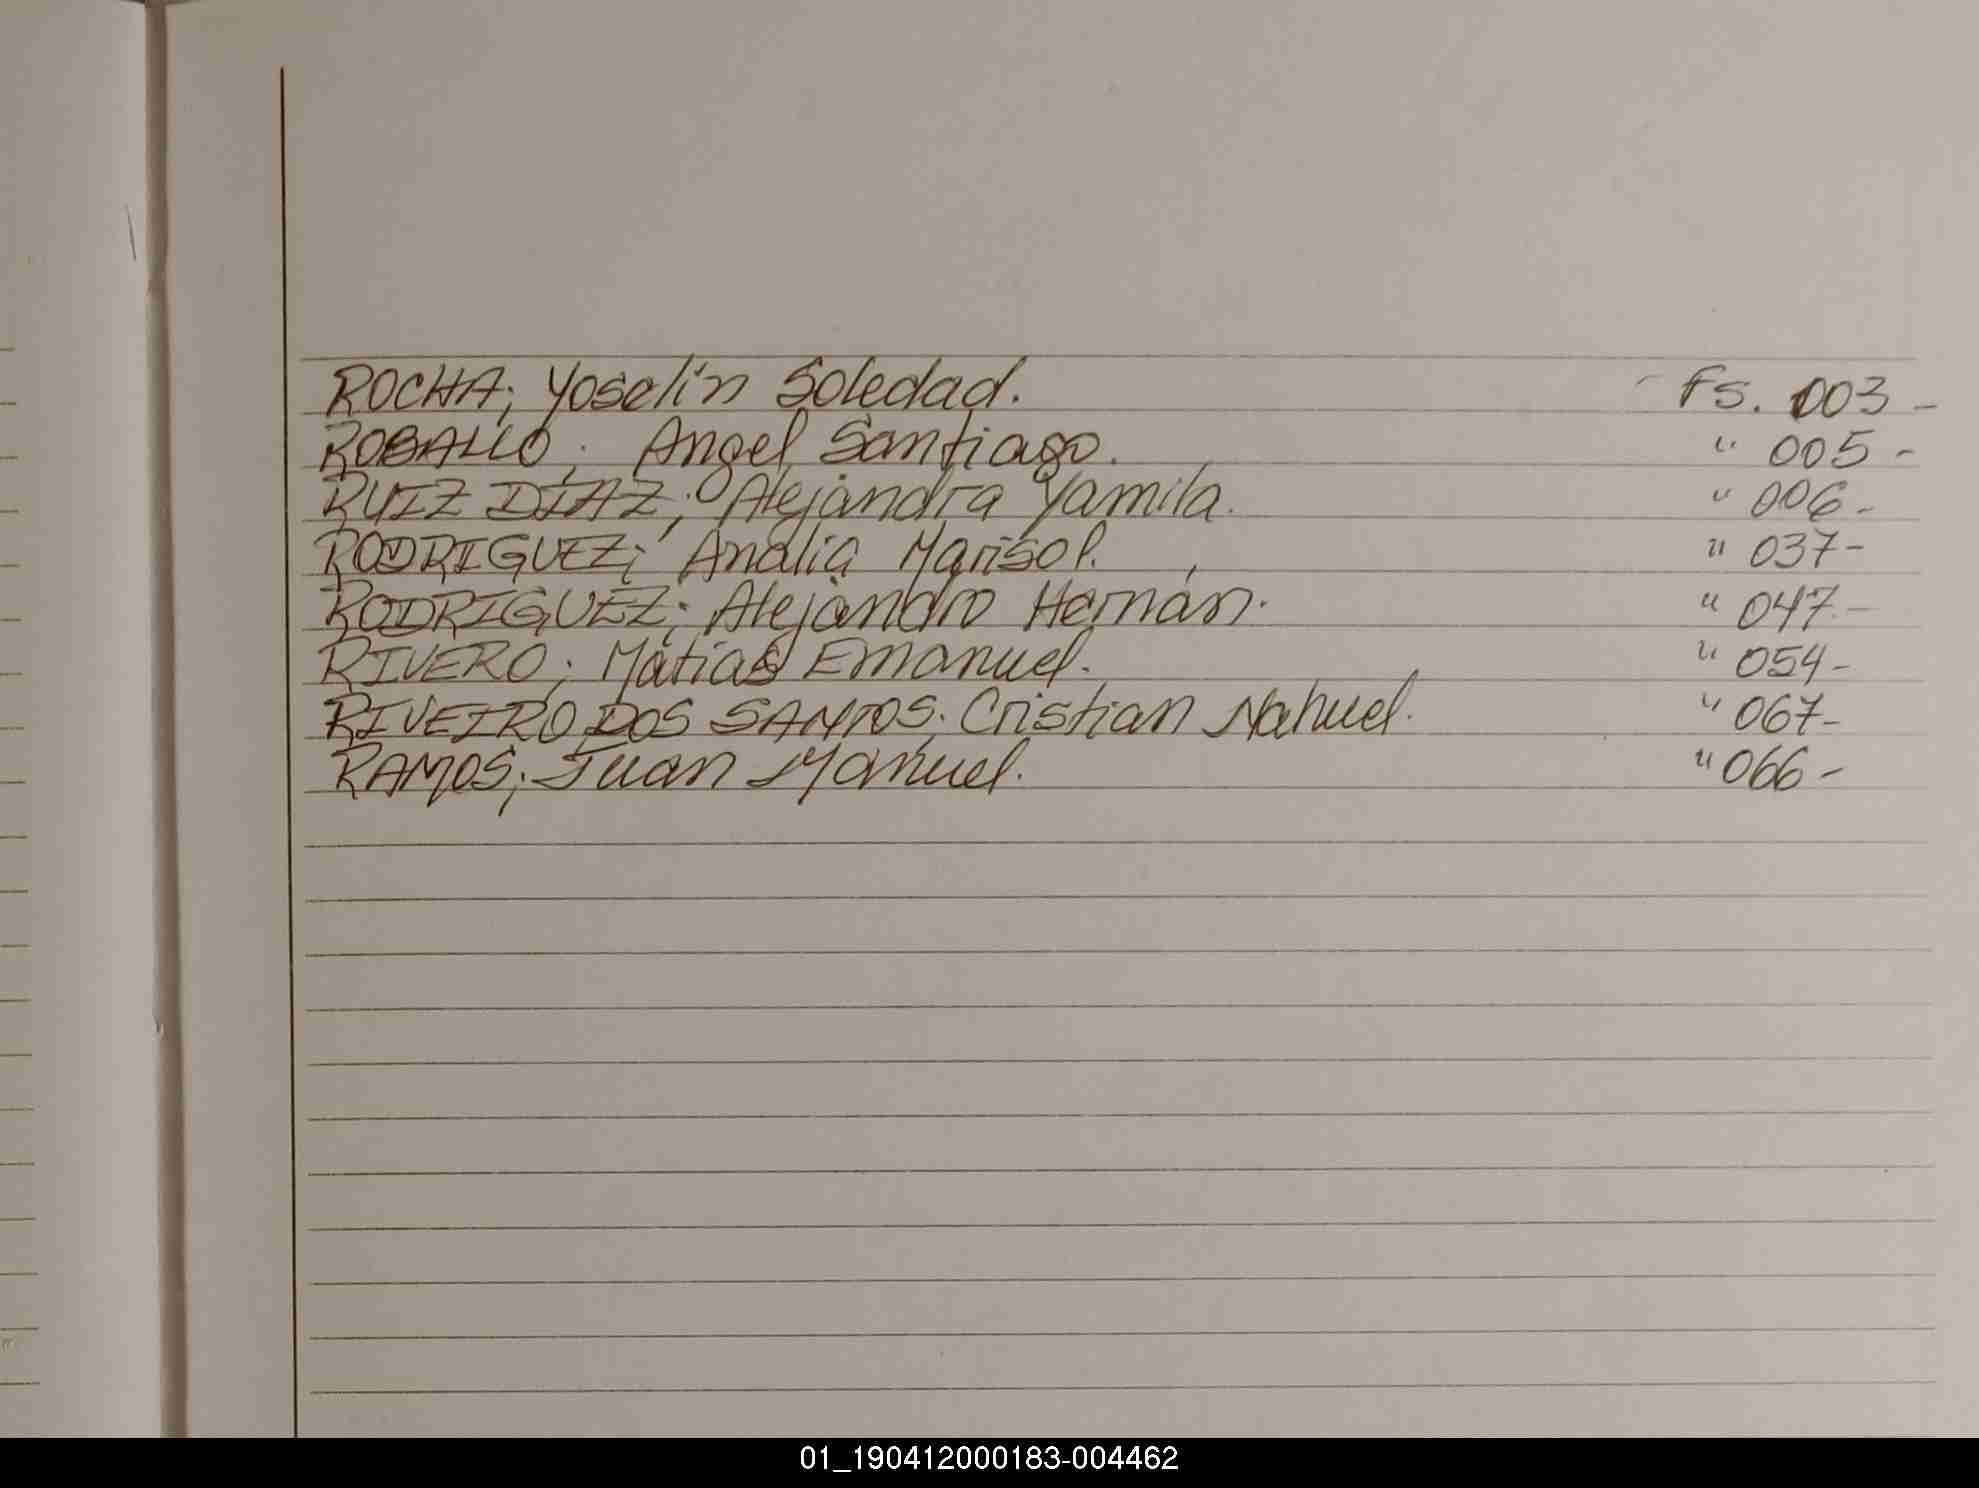 ROCHA; Yoselín Soledad. - Fs. 003 -
ROBALLO; Angel Santiago. " 005 -
RUIZ DÍAZ; Alejandra Yamila. " 006 -
RODRIGUEZ; Analia Marisol. " 037 -
RODRIGUEZ; Alejandro Hernán. " 047 -
RIVERO; Matias Emanuel. " 054 -
RIVEIRO DOS SANTOS; Cristian Nahuel. " 067 -
RAMOS; Juan Manuel. " 066 -
01_190412000183-004462